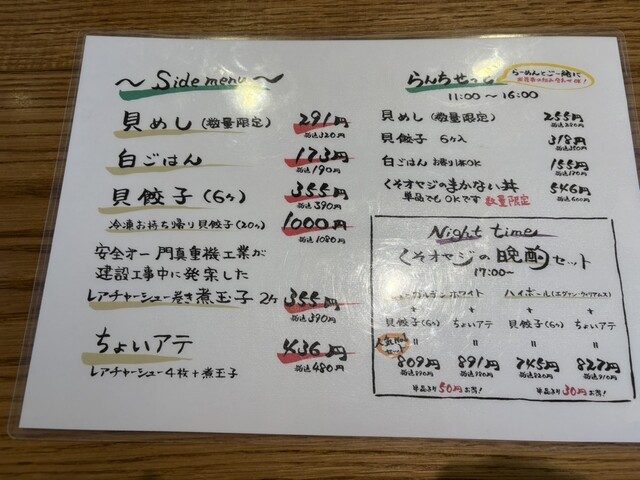 ～ Side menu ～
貝めし (数量限定) 291円
税込320円
白ごはん 173円
税込190円
貝餃子 (6ヶ) 355円
税込390円
冷凍お持ち帰り貝餃子(20ヶ) 1000円
税込1080円
安全オー 門真重機工業が
建設工事中に発案した
レアチャーシュー巻き煮玉子 2ヶ 355円
税込390円
ちょいアテ 436円
レアチャーシュー4枚+煮玉子 税込480円
らんちせっと
らーめんとご一緒に
11:00～16:00
貝めし (数量限定) 255円
税込280円
貝餃子 6ヶ入 318円
税込350円
白ごはん お替り1杯OK 155円
税込170円
くそオヤジのまかない丼 546円
単品でもOKです 数量限定 税込600円
Night time
くそオヤジの晩酌セット
17:00～
ハイボール(エヴァン・ウィリアムス)
+ + + +
貝餃子(6ヶ) ちょいアテ 貝餃子(6ヶ) ちょいアテ
人気No1
= = = =
809円 891円 745円 827円
税込890円 税込980円 税込820円 税込910円
単品より50円お得! 単品より30円お得!